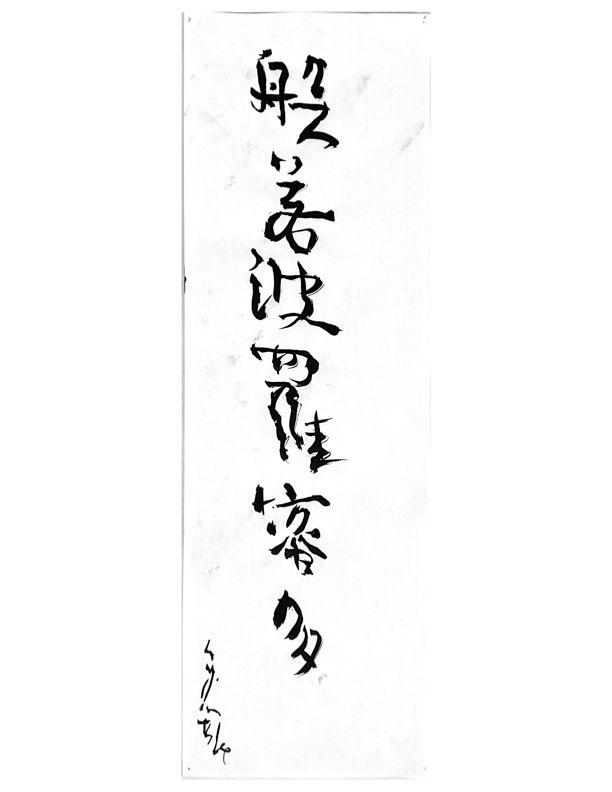 般若波羅蜜多